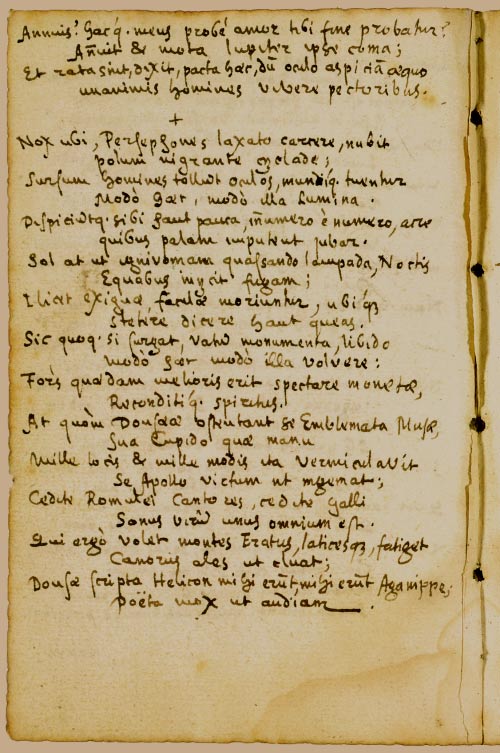 Annuis? hacq. meus probé amor tibi fine probatur?
Añuit & mota Iupiter ipse coma;
Et rata sint, dixit, pacta hæc, dũ oculo aspiciã æquo
unanimis homines vivere pectoribus.
+
Nox ubi, Persephones laxato carcere, nubit
polum nigrante cyclade;
Sursum homines tollũt oculos, mundiq. tuentur
Modò hæc, modò illa Lumina.
Despiciũtq. sibi haut pauca, iñumero è numero, acre
quibus palam imputent jubar.
Sol at ut ignivomam quassando lampada, Noctis
Equabus injicit fugam;
Ilicet exiguæ faculæ moriuntur, ubiq;
Stetére dicere haut queas.
Sic quoq. si surgat, vatũ monumenta, libido
modò hæc modò illa volvere:
Fors quædam melioris erit spectare monetæ,
Reconditiq. spiritus.
At quòm Dousææ ostentant se Emblemata Musæ,
Sua Cupido quæ manu
Mille locis & mille modis ita vermiculavit
Se Apollo victum ut ingemat;
Cedite Romulei Cantores, cedite Galli
Sonus virũ unus omnium est.
Qui ergò volet montes Eratus, laticesq;, fatiget
Canorus ales ut cluat;
Dousæ scripta Helicon mihi erũt, mihi erũt Aganippe;
Poëta mox ut audiam.